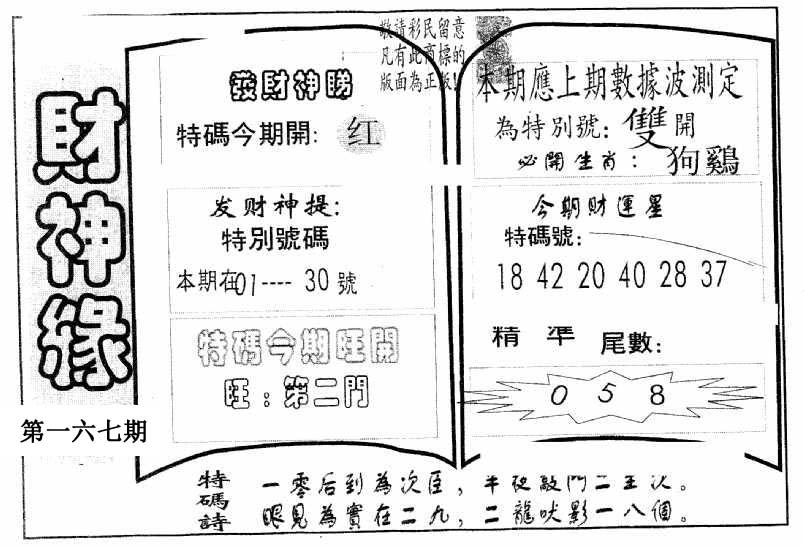 敬請彩民留意
凡有此商標的
版面為正版!
財神緣
第一六七期
發財神睇
特碼今期開: 红
发财神提:
特別號碼
本期在01----30號
特碼今期旺開
旺:第二門
本期應上期數據波測定
為特別號: 雙開
必開生肖: 狗鷄
今期财運星
特碼號:
18 42 20 40 28 37
精準 尾數:
0 5 8
特碼詩
一零后到為次臣,半夜敲門二至次。
眼見為實在二九,二龍吠影一八個。